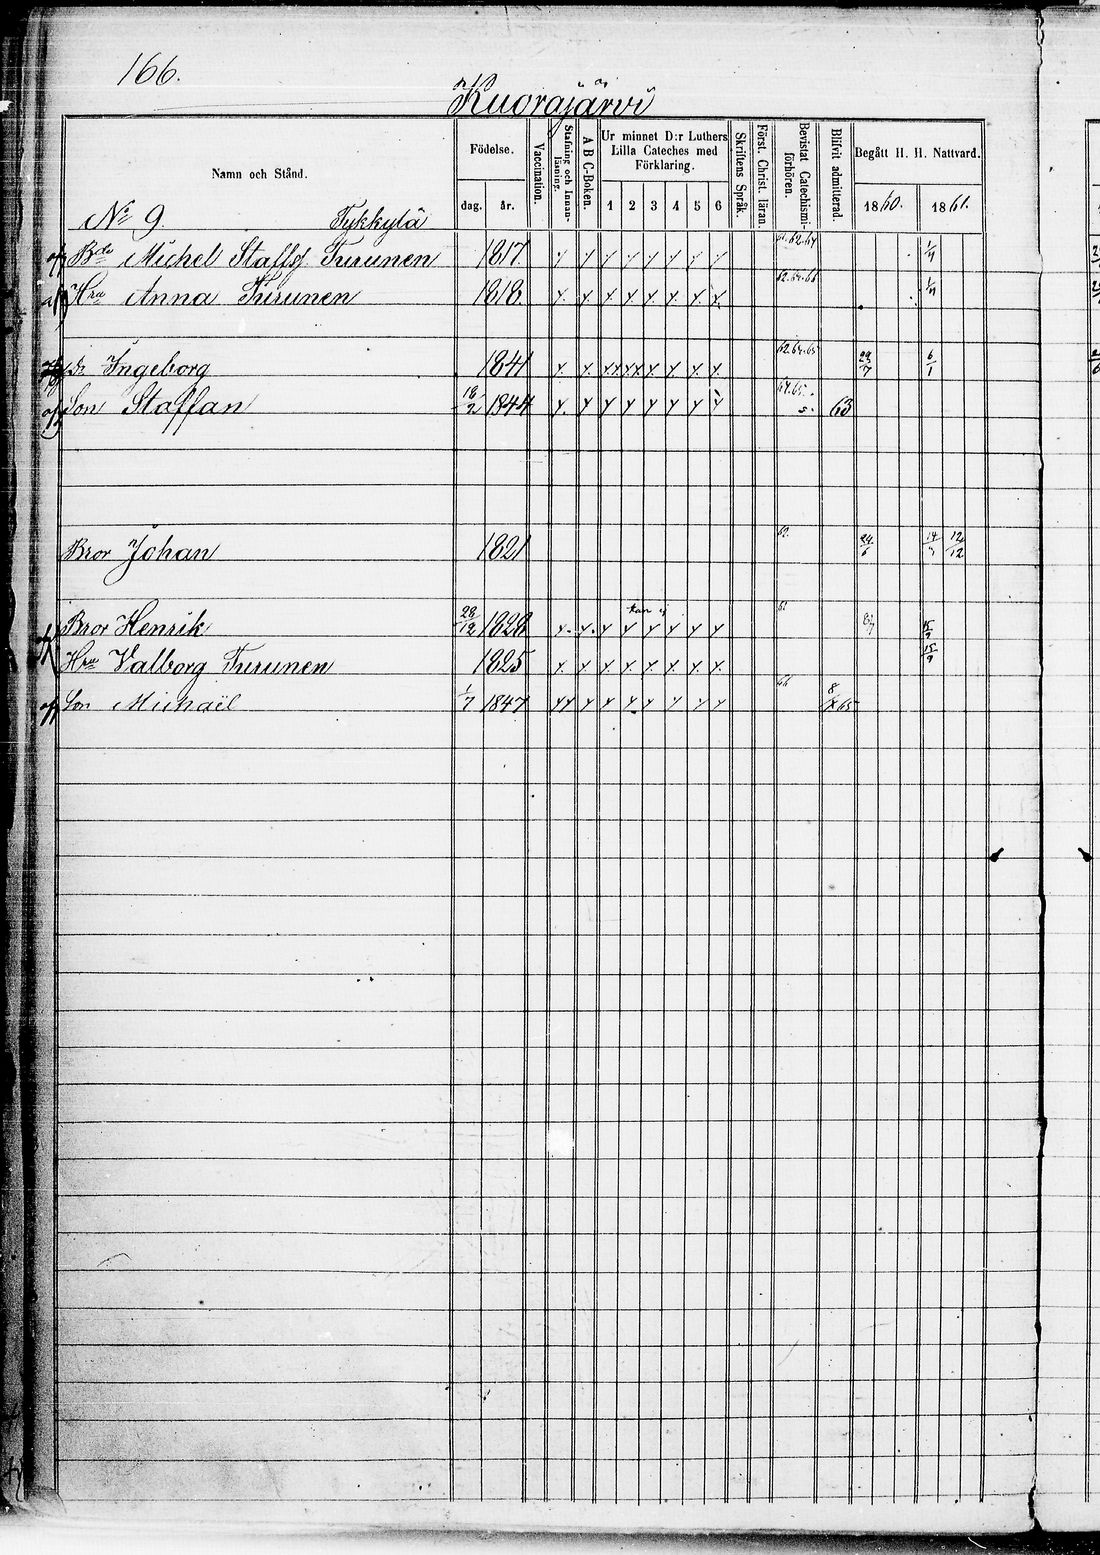 166.
Kuorajärvi
Namn och Stånd.
Födelse.
dag.
år.
Vaccination.
Stafning och Innanläsning.
A B C-Boken.
Ur minnet D:r Luthers
Lilla Cateches med
Förklaring.
1 2 3 4 5 6
Skriftens Språk.
Först. Christ. läran.
Bevistat Catechismiförhören.
Blifvit admitterad.
Begått H. H. Nattvard.
1860. 1861.
No 9. Tykkylä
Bde Michel Staffsf Turunen 1817 61.62.64 1/4
Hru Anna Turunen 1818 62.64.66 1/4
Dr Ingeborg 1841 62.64.65 29/7 6/1
Son Staffan 18/2 1844 64.65. 63
Bror Johan 1821 62. 24/6 12/12
kan ej
Bror Henrik 28/12 1828 61 15/9
Hru Valborg Turunen 1825 15/9
Son Michaël 1/7 1847 66 65